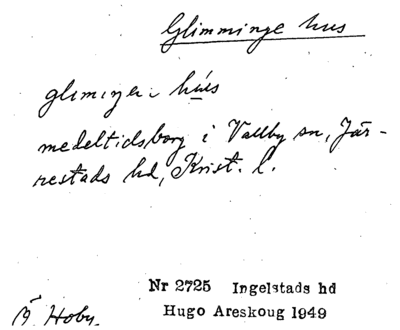 Glimminge hus
hus
medeltidsborg i Vallby sn, Jär-
restads hd, Krist. l.
Nr 2725 Ingelstads hd
Ö Hoby. Hugo Areskoug 1949